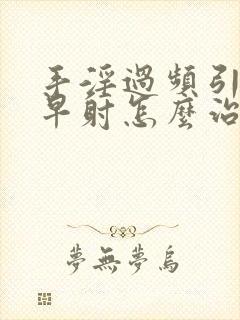 手淫過頻引
早射怎麼治
夢無夢烏